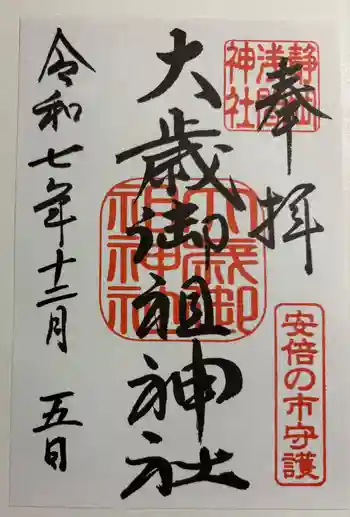 奉拝
静岡
浅間
神社
安倍の市守護
大歳御祖神社
大歳御
祖神社
令和七年十二月 五日